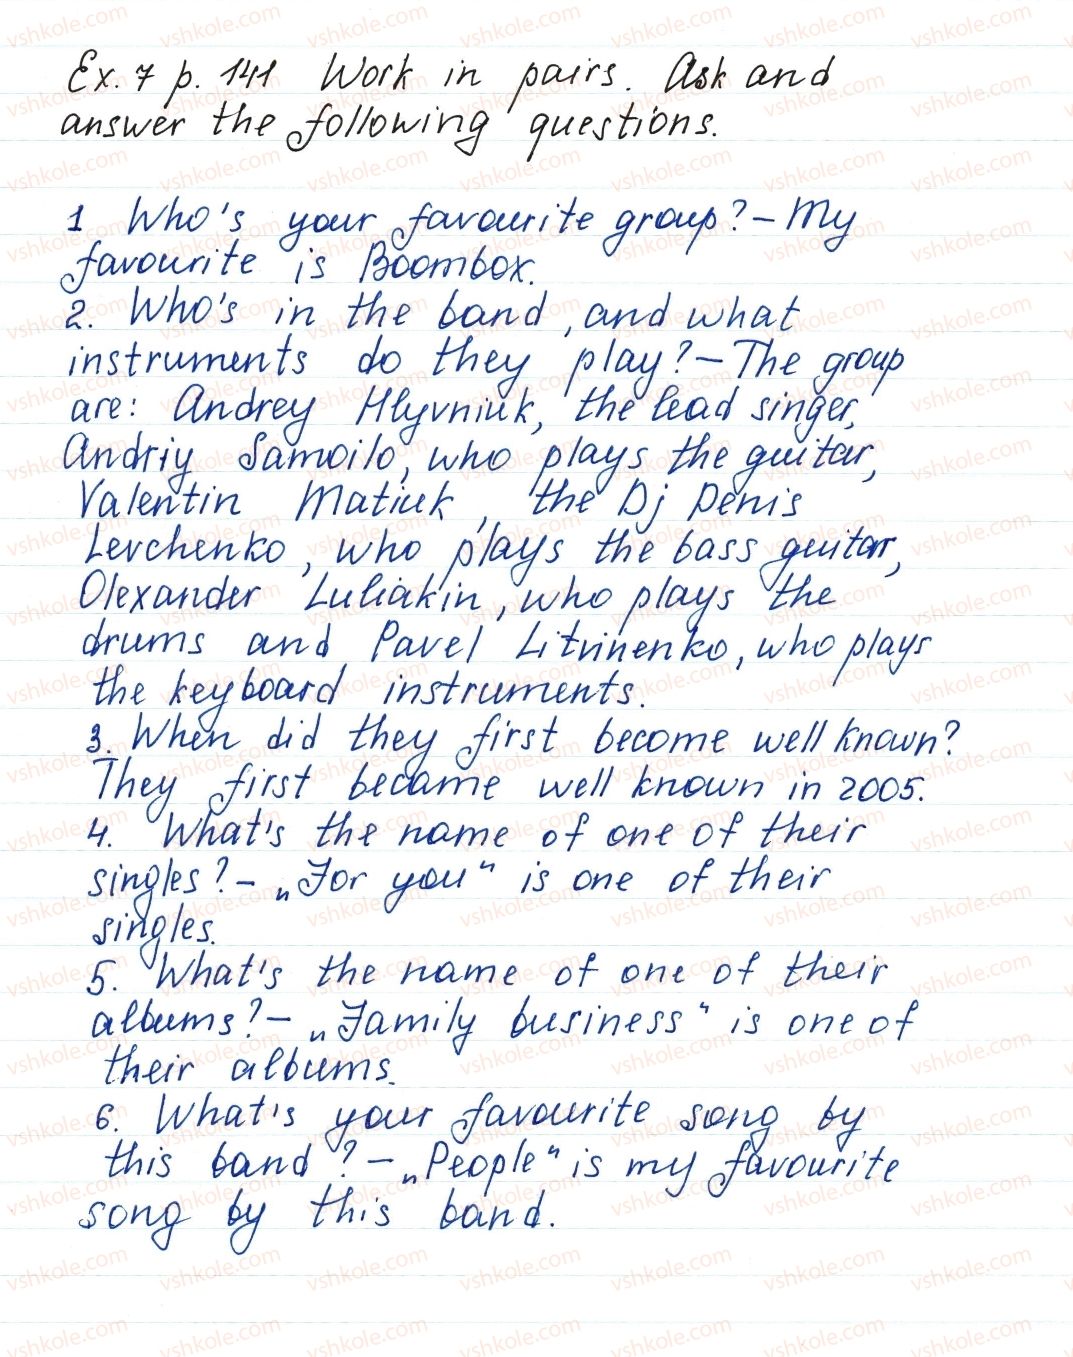 Ex. 7 p. 141 Work in pairs. Ask and
answer the following questions.
1 Who's your favourite group? – My
favourite is Boombox.
2. Who's in the band, and what
instruments do they play? – The group
are: Andrey Hlyvniuk, the lead singer,
Andriy Samoilo, who plays the guitar,
Valentin Matiuk, the Dj Denis
Levchenko, who plays the bass guitar,
Olexander Luliakin, who plays the
drums and Pavel Litvinenko, who plays
the keyboard instruments.
3. When did they first become well known?
They first became well known in 2005.
4. What's the name of one of their
singles? – „For you" is one of their
singles.
5. What's the name of one of their
albums? – „Family business" is one of
their albums.
6. What's your favourite song by
this band? – „People" is my favourite
song by this band.
vshkole.com